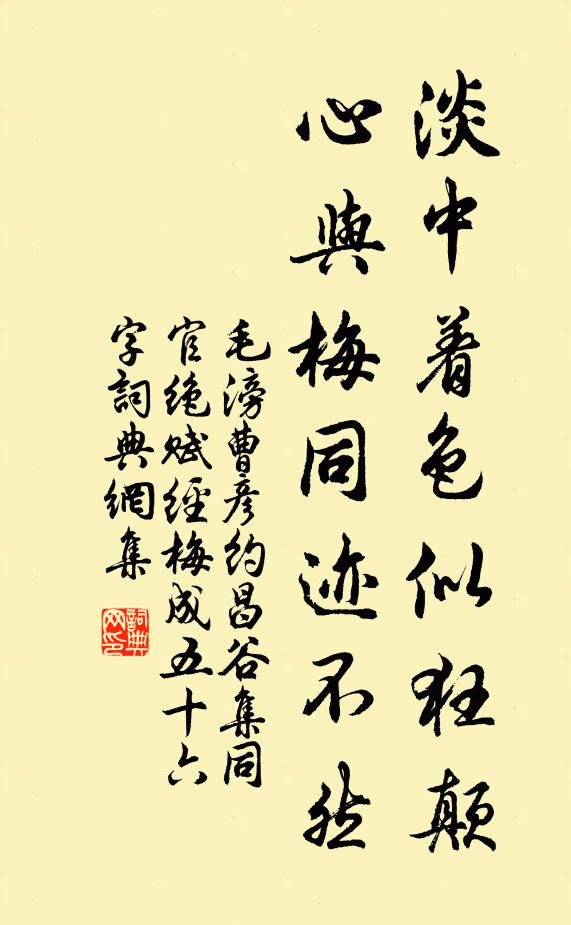 淡中着色似狂顛
心與梅同迹不然
毛滂曹彥約昌谷集同
官絶賦經梅成五十六
字詞典網集
詞典
网印